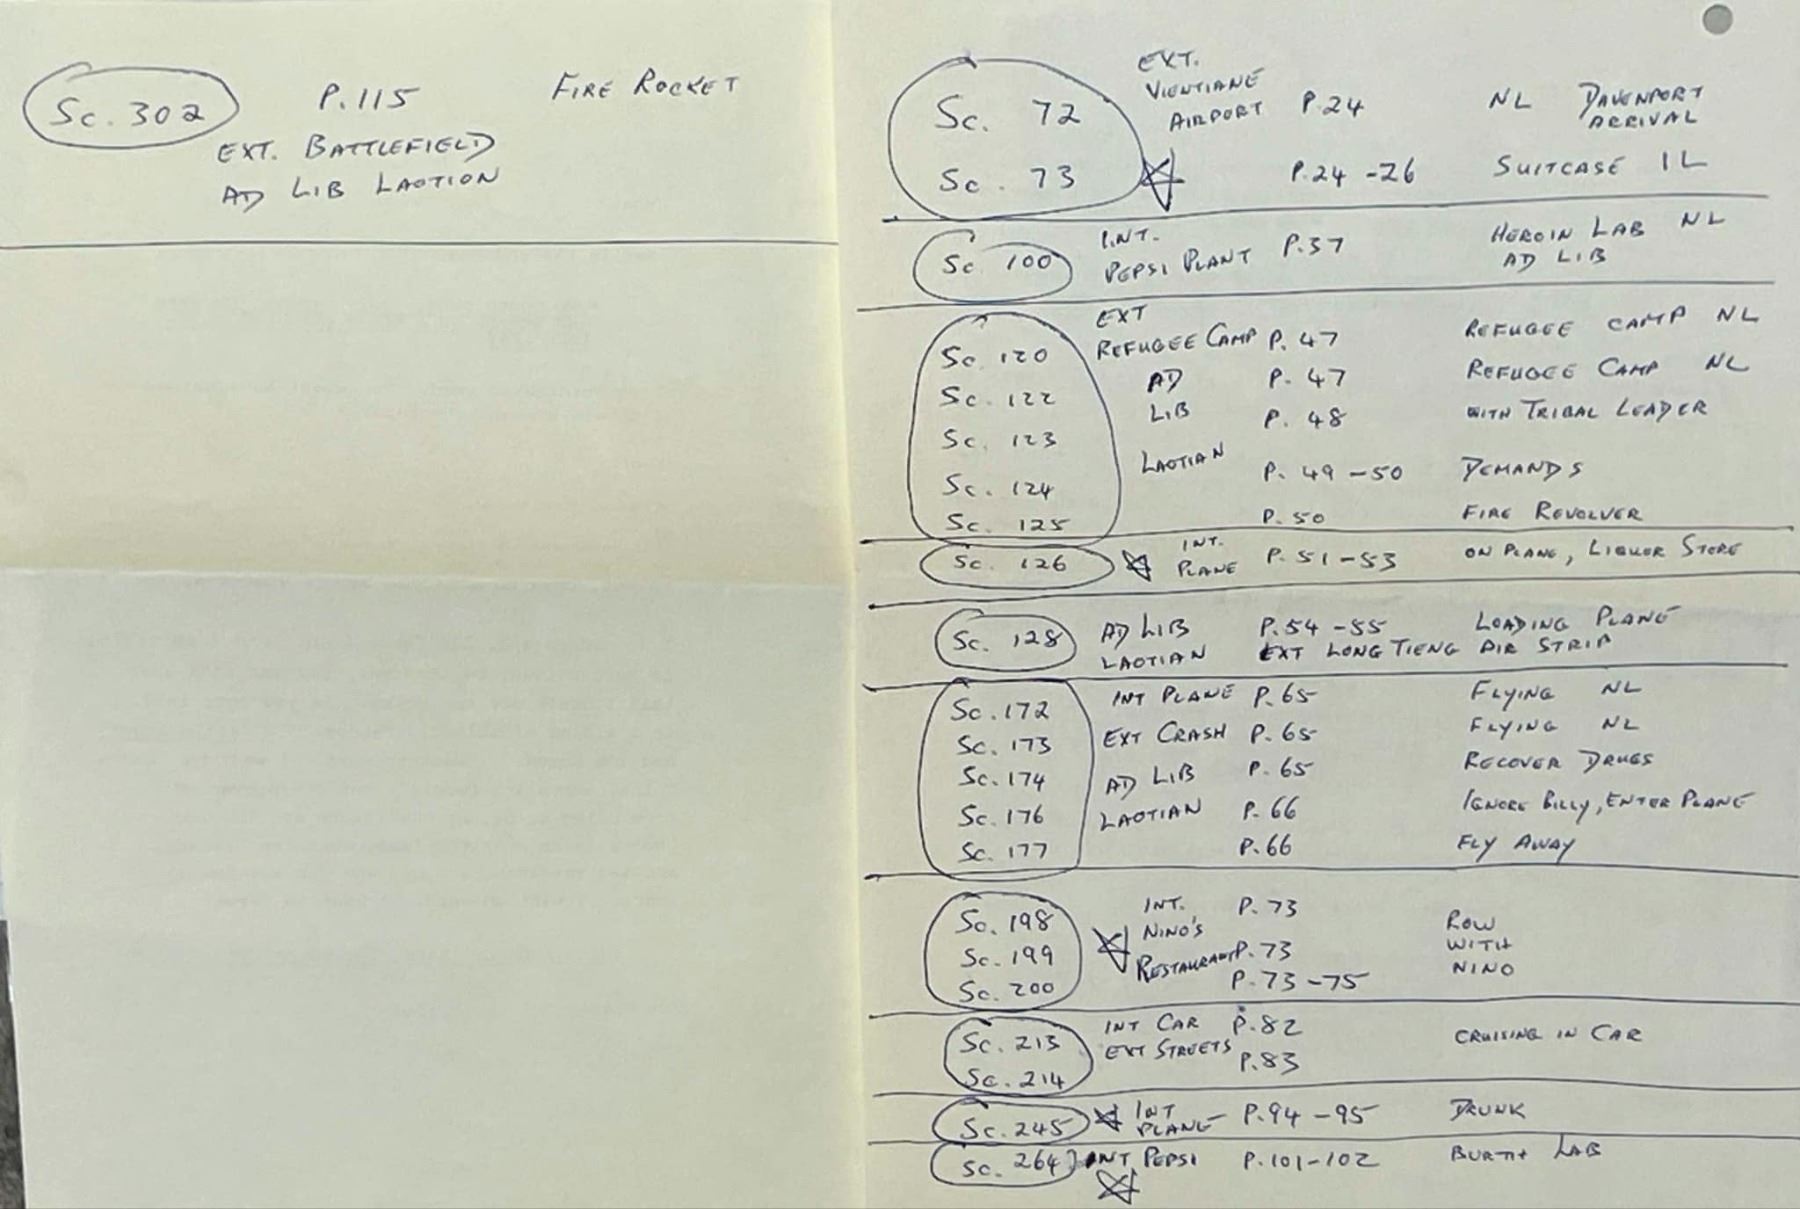 Sc. 302 P.115 FIRE ROCKET
EXT. BATTLEFIELD
AD LIB LAOTION
EXT.
VIENTIANE
Sc. 72 AIRPORT P.24 NL DAVENPORT
ARRIVAL
Sc. 73 P.24-26 SUITCASE 1L
INT.
Sc. 100 PEPSI PLANT P.37 HEROIN LAB NL
AD LIB
EXT
Sc. 120 REFUGEE CAMP P. 47 REFUGEE CAMP NL
Sc. 122 AD P. 47 REFUGEE CAMP NL
Sc. 123 LIB P. 48 WITH TRIBAL LEADER
Sc. 124 LAOTIAN P. 49-50 DEMANDS
Sc. 125 P. 50 FIRE REVOLVER
INT.
Sc. 126 PLANE P. 51-53 ON PLANE, LIQUOR STORE
Sc. 128 AD LIB P.54-55 LOADING PLANE
LAOTIAN EXT LONG TIENG AIR STRIP
Sc. 172 INT PLANE P.65 FLYING NL
Sc. 173 EXT CRASH P.65 FLYING NL
Sc. 174 AD LIB P.65 RECOVER DRUGS
Sc. 176 LAOTIAN P.66 IGNORE BILLY, ENTER PLANE
Sc. 177 P.66 FLY AWAY
INT.
Sc. 198 NINO'S P.73 ROW
Sc. 199 RESTAURANT P.73 WITH
Sc. 200 P.73-75 NINO
Sc. 213 INT CAR P.82 CRUISING IN CAR
EXT STREETS
Sc. 214 P.83
INT
Sc. 245 PLANE P.94-95 DRUNK
Sc. 264 INT PEPSI P.101-102 LAB